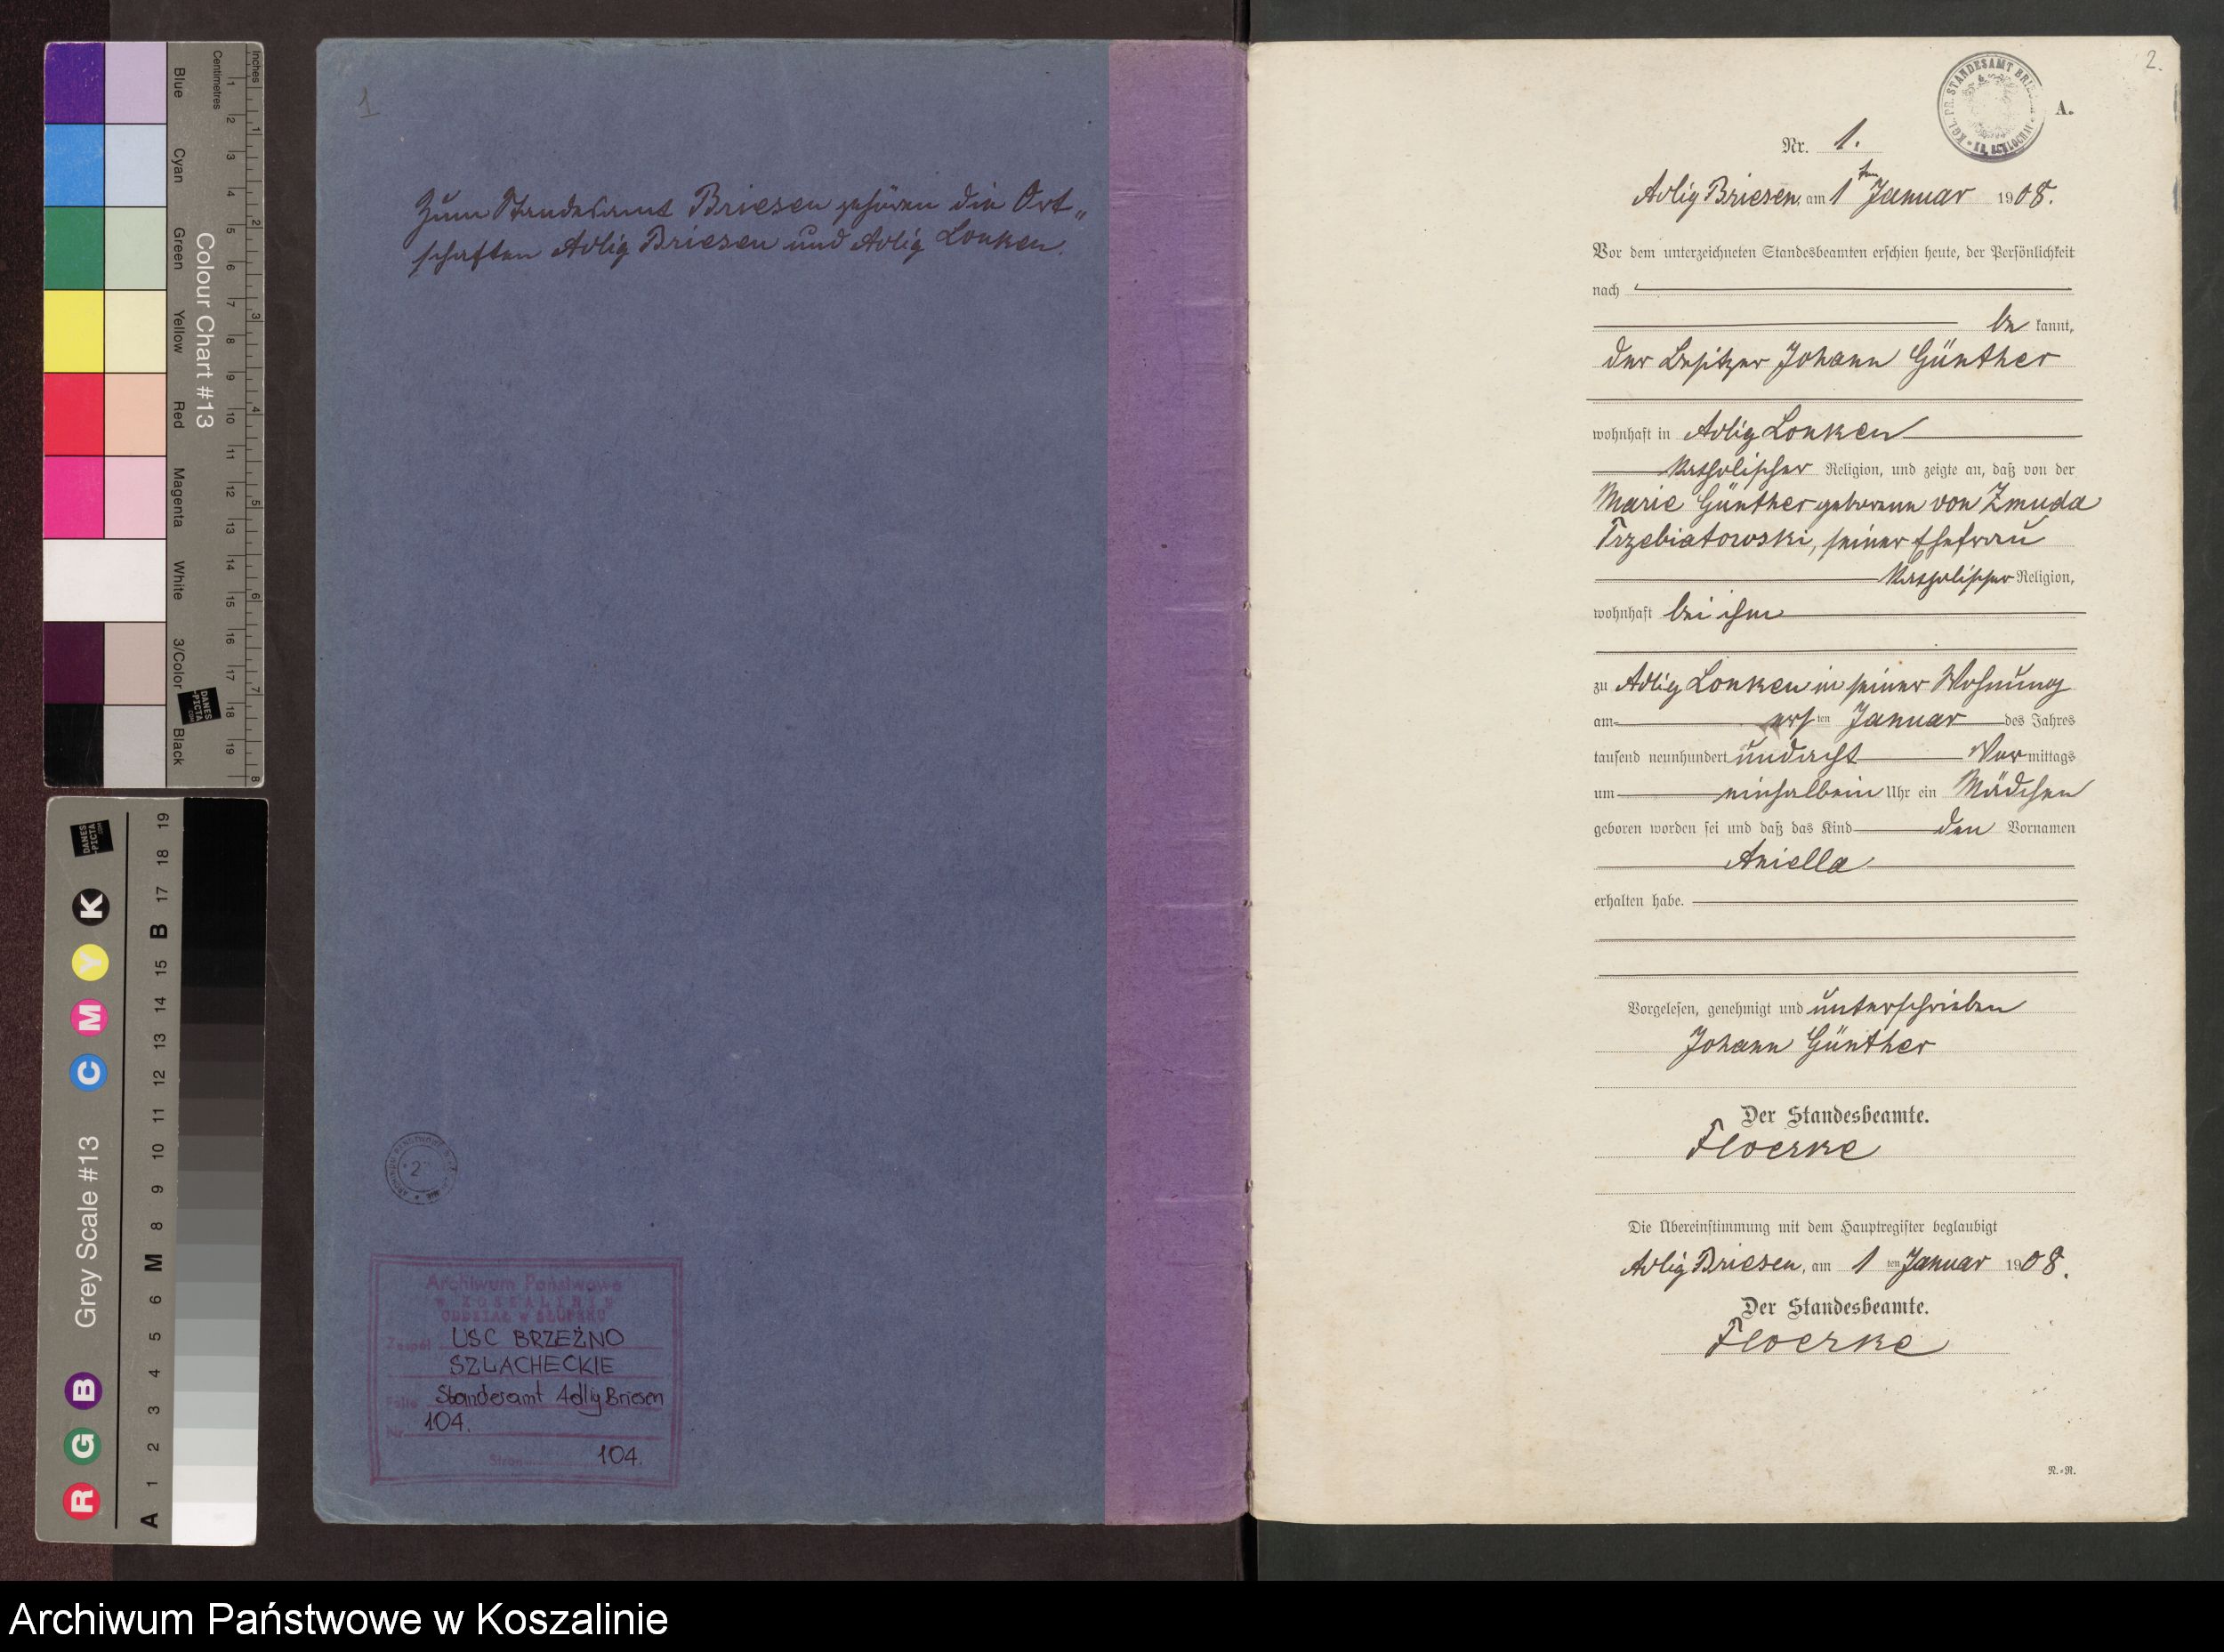 Blue
Cyan
Green
Yellow
Red
Magenta
White
3/Color
Black
Colour Chart #13
Centimetres
Inches
1 2 3 4 5 6 7 8 9 10 11 12 13 14 15 16 17 18 19
1 2 3 4 5 6 7 8
DANES
-PICTA
.COM
Grey Scale #13
R G B C M Y K
A 1 2 3 4 5 6 M 8 9 10 11 12 13 14 15 B 17 18 19
DANES
-PICTA
.COM
1
Zum Standesamt Briesen gehören die Ort„
schaften Adlig Briesen und Adlig Lonken.
2
Archiwum Państwowe
W KOSZALINIE
ODDZIAŁ W SŁUPSKU
Zespół USC BRZEŹNO
SZLACHECKIE
Standesamt Adlig Briesen
Nr 104.
Stron 104.
2.
KGL. PR. STANDESAMT
A.
Nr. 1.
Adlig Briesen, am 1ten Januar 1908.
Vor dem unterzeichneten Standesbeamten erschien heute, der Persönlichkeit
nach
be kannt,
der Besitzer Johann Günther
wohnhaft in Adlig Lonken
katholischer Religion, und zeigte an, daß von der
Marie Günther geborenen von Zmuda
Trzebiatowski, seiner Ehefrau
katholischer Religion,
wohnhaft bei ihm
zu Adlig Lonken in seiner Wohnung
am ersten Januar des Jahres
tausend neunhundert und acht Vormittags
um einhalbein Uhr ein Mädchen
geboren worden sei und daß das Kind den Vornamen
Aniella
erhalten habe.
Vorgelesen, genehmigt und unterschrieben
Johann Günther
Der Standesbeamte.
Floerke
Die Übereinstimmung mit dem Hauptregister beglaubigt
Adlig Briesen, am 1ten Januar 1908.
Der Standesbeamte.
Floerke
N.-R.
Archiwum Państwowe w Koszalinie